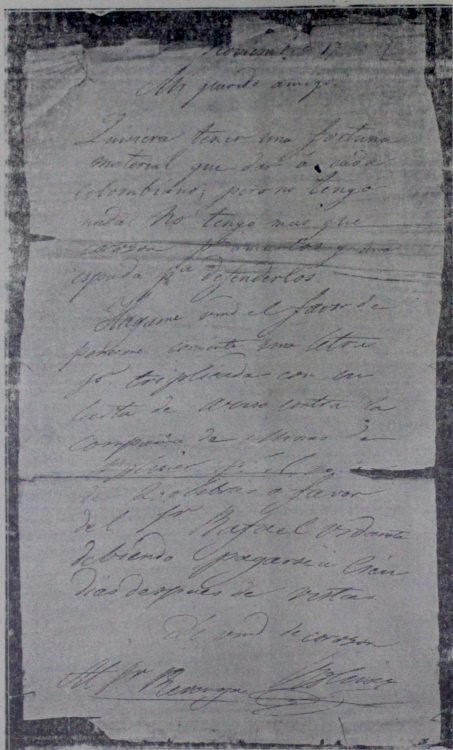 Noviembre 17
Mi querido amigo
Quisiera tener una fortuna
material que dar a cada
colombiano; pero no tengo
nada. No tengo mas que
corazon pa amarlos y una
espada pa defenderlos
Hagame vmd el favor de
ponerme corriente una letra
por triplicada con su
carta de aviso contra la
compañia de Minas de
de libras a favor
del Sr Rafael
debiendo pagarse a Cien
dias despues de vista
De vmd de corazon
Al Sr Revenga Bolivar